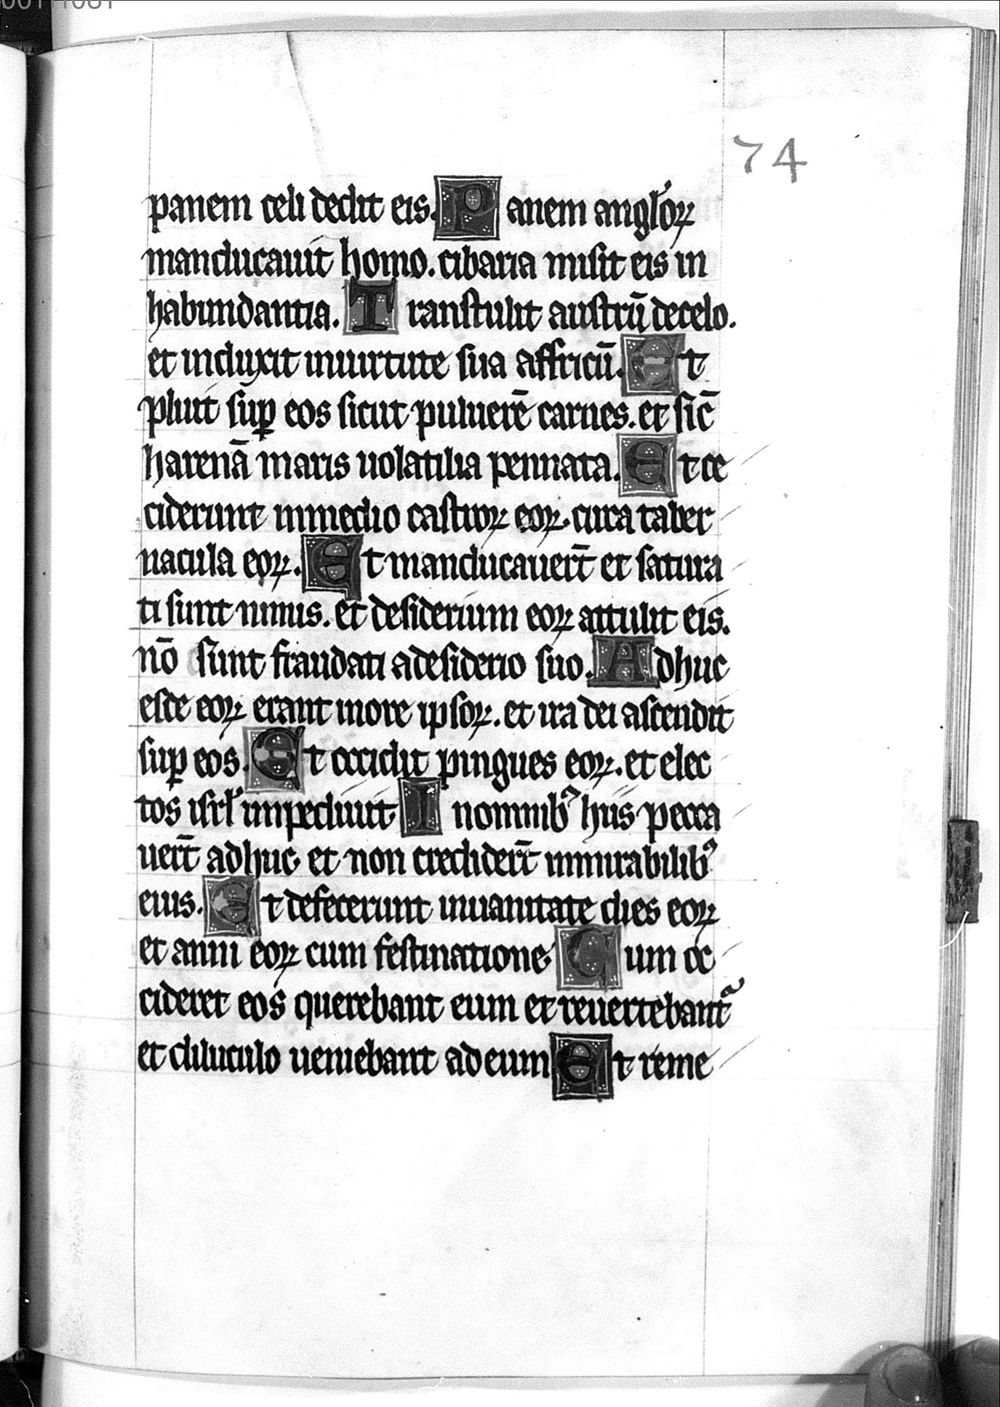 74
panem celi dedit eis. Panem anglor̄ꝝ
manducauit homo. cibaria misit eis in
habundantia. Transtulit austrū decelo.
et induxit inuirtute sua affricū. Et
pluit suꝑ eos sicut puluerē carnes. et sic̄
harenā maris uolatilia pennata. Et ce
ciderunt inmedio castroꝝ eoꝝ. circa taber
nacula eoꝝ. Et manducauert̄ et satura
ti sunt nimis. et desiderium eoꝝ attulit eis.
nō sunt fraudati adesiderio suo. Adhuc
esce eoꝝ erant inore ipsoꝝ. et ira dei ascendit
suꝑ eos. Et occidit pingues eoꝝ. et elec
tos isrl' impediuit In omnibꝰ hiis pecca
uert̄ adhuc et non credidert̄ inmirabilibꝰ
eius. Et defecerunt inuanitate dies eoꝝ
et anni eoꝝ cum festinatione Cum oc
cideret eos querebant eum et reuertebant̄
et diluculo ueniebant ad eum Et reme